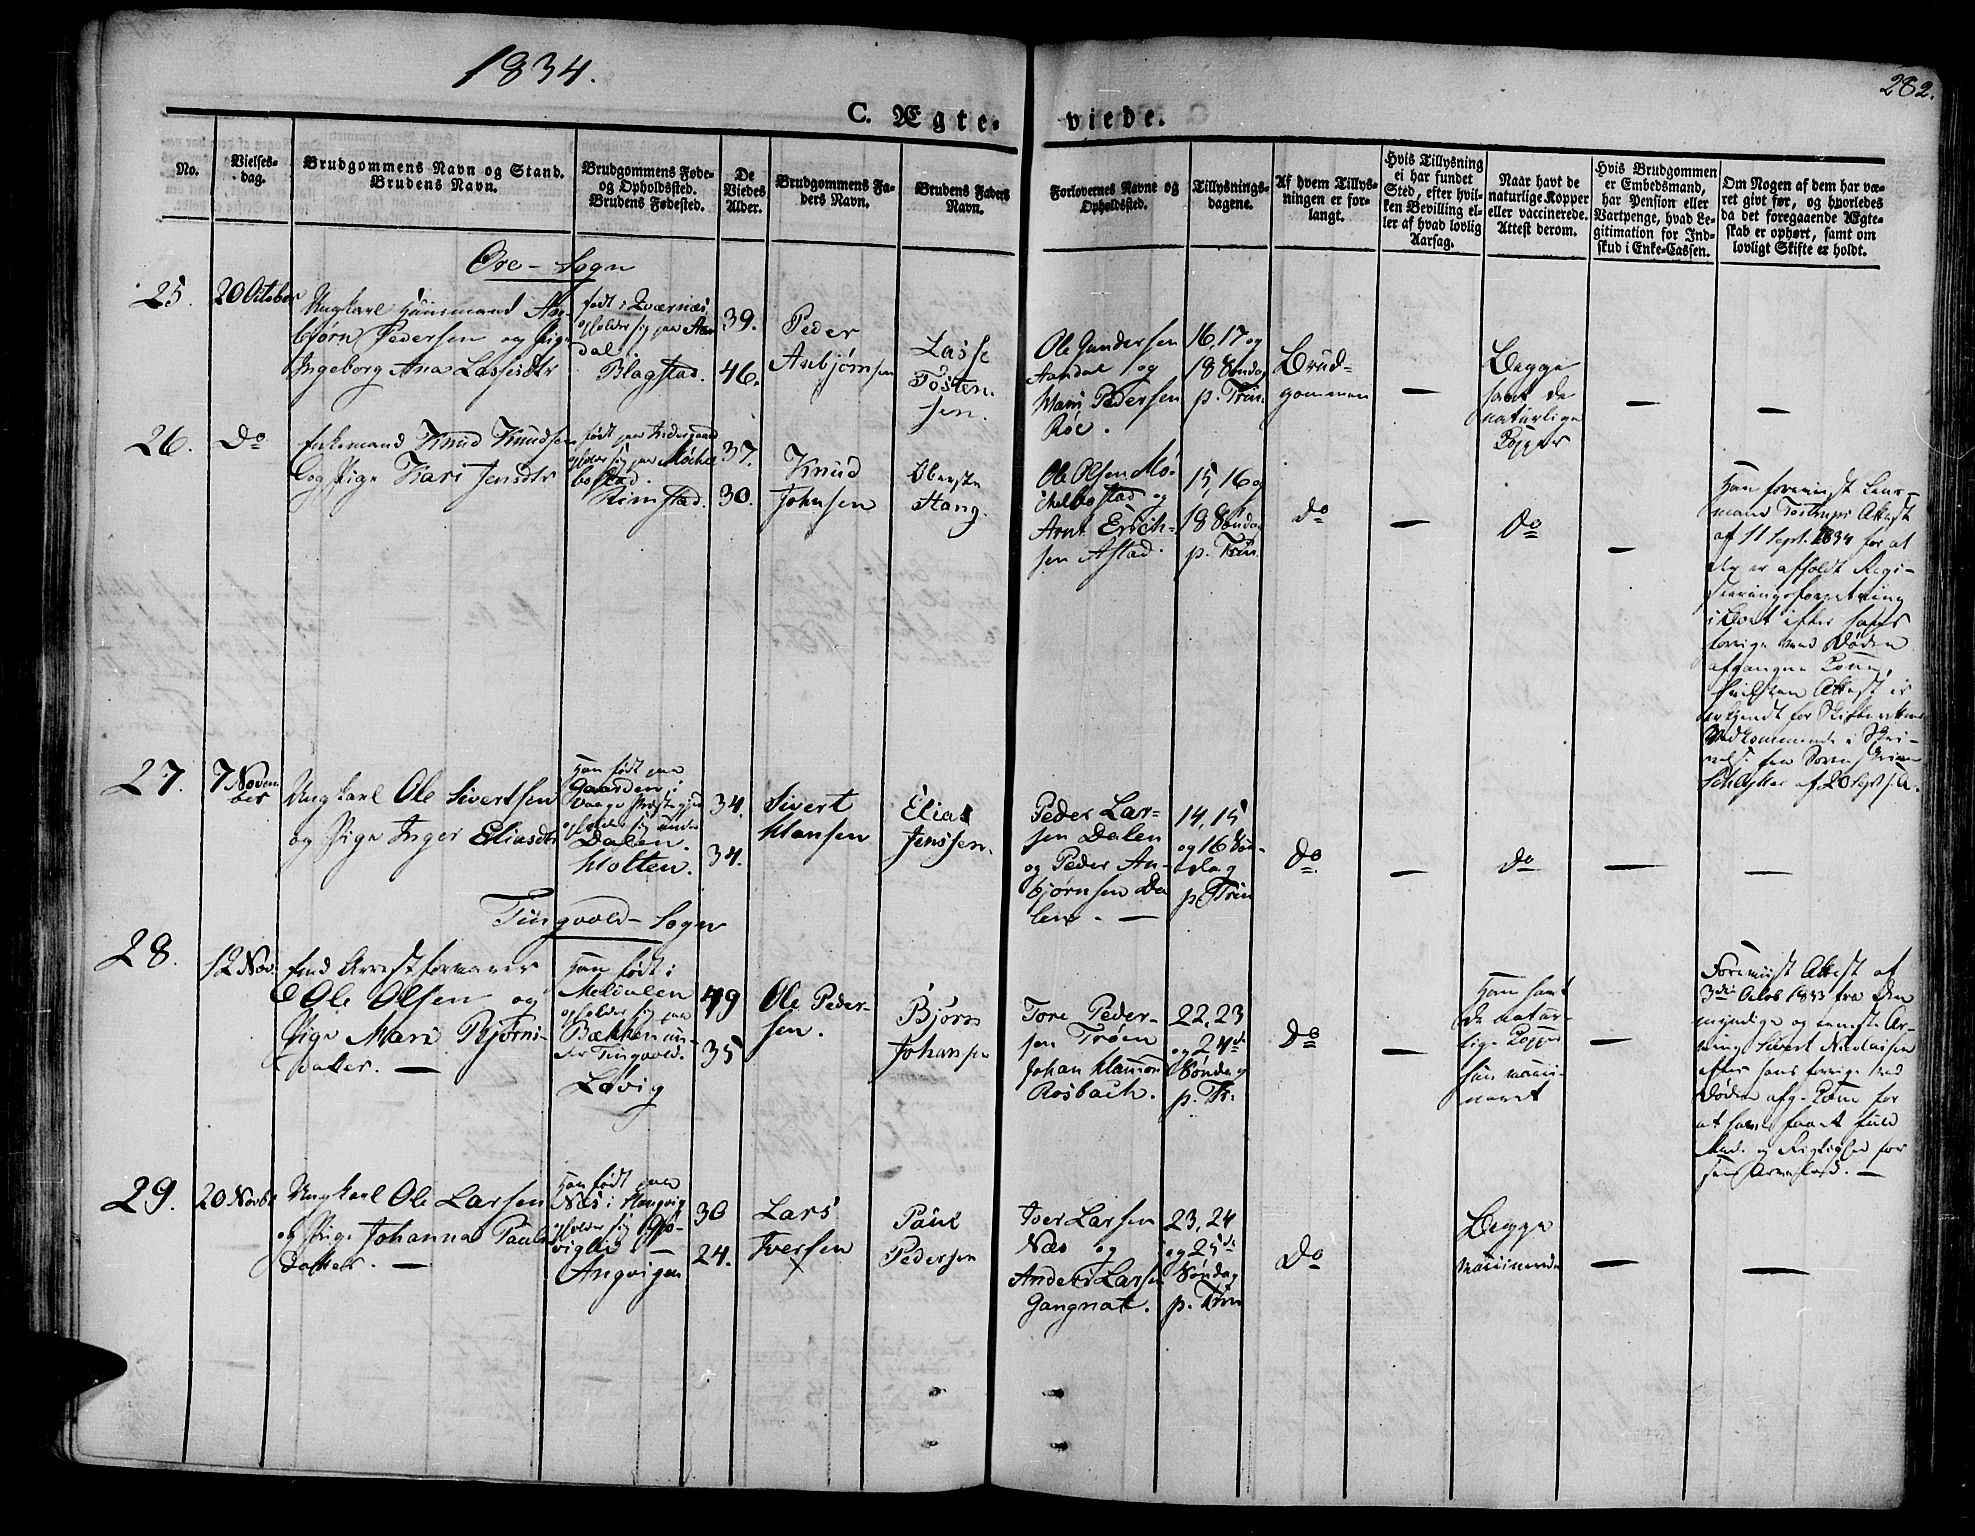 1834.
282.
C. Ægte-
viede.
No.
Vielses-
dag.
Brudgommens Navn og Stand.
Brudens Navn.
Brudgommens Føde-
og Opholdssted.
Brudens Fødested.
De
Viedes
Alder.
Brudgommens Fa-
ders Navn.
Brudens Faders
Navn.
Forlovernes Navne og
Opholdssted.
Tillysnings-
dagene.
Af hvem Tillys-
ningen er for-
langt.
Hvis Tillysning
ei har fundet
Sted, efter hvil-
ken Bevilling el-
ler af hvad lovlig
Aarsag.
Naar havt de
naturlige Kopper
eller vaccinerede.
Attest derom.
Hvis Brudgommen
er Embedsmand,
har Pension eller
Vartpenge, hvad Le-
gitimation for Ind-
skud i Enke-Cassen.
Om Nogen af dem har væ-
ret givt før, og hvorledes
da det foregaaende Ægte-
skab er ophørt, samt om
lovligt Skifte er holdt.
Øre- Sogn
25.
20 October
Ungkarl Huusmand As-
bjørn Pedersen og Pige
Ingeborg Ana Lassesdtr
født i Qværnæs
opholder sig paa Aan
dal.
Blagstad.
39.
46.
Peder
Asbjørnsen
Lasse
Tosten-
sen.
Ole Gundersen
Aandal og
Hans Pedersen
Røe.
16, 17 og
18 Søndag
p. Trin.
Brud-
gommen
—
Begge
havt de
naturlige
Copper
—
—
26.
Do
Enkemand Knud Knudsen
og Pige Kari Jensdtr
født paa
opholder sig paa Møchel
bostad.
Rimstad.
37.
30.
Knud
Johnsen
Oberste
Stang.
Ole Olsen Mø-
chelbostad og
Arnt Erich-
sen Astad.
15, 16 og
18 Søndag
p. Trin.
Do
—
Do
—
Han foreviist Lens-
mand Tostrups Attest
af 11 Sept. 1834 for at
der er afholdt Regi-
streringsforretning
i Boet efter hans
forrige ved Døden
afgangne Kone,
hvilken Attest er
Vedkommende i Skri-
af 20 Sept. s. A.
27.
7 Novem
ber
Ungkarl Ole Sivertsen
og Pige Inger Eliasdtr
Han født paa
Gaarden i
Vaage Præstegjeld
opholder sig under
Dalen.
Holten.
34.
34.
Sivert
Hansen
Elias
Jenssen.
Peder Lar-
sen Dalen
og Peder As-
bjørnsen Da
len. —
14, 15
og 16 Søn-
dag
p. Trin
Do
—
Do
—
—
Tingvold- Sogn
28.
12 Nov.
Arrestforvarer
Ole Olsen og
Pige Mari Bjørns-
datter. —
Han født i
Meldalen
opholder sig paa
Bækken un-
der Tingvold.
Løvig
49
35
Ole Peder-
sen.
Bjørn
Johansen
Tore Peder-
sen Trøen
Johan Hanson
Rosbach.
22, 23
og 24de
Søndag
p. Tr.
Do
—
Han havt
de natur-
lige Copper
hun vacci-
neret
—
Foreviist Attest af
3die Octob 1833 fra den
myndige og eneste Ar-
ving Sivert Nicolaisen
efter hans forrige ved
Døden afg. Kone for
at have faaet fuld
og Rigtighed for
sin Arvelod. —
29.
20 Novbr
Ungkarl Ole Larsen
og Pige Johanna Pauls
datter. —
Han født paa
Næs i
opholder sig Gjø-
viglid —
Angvigen
30
24.
Lars
Iversen
Paul
Pedersen
Iver Larsen
Næs og
Anders Larsen
Gangnat.
23, 24
og 25de
Søndag
p. Trin
Do
—
Begge
vaccinerede
—
—